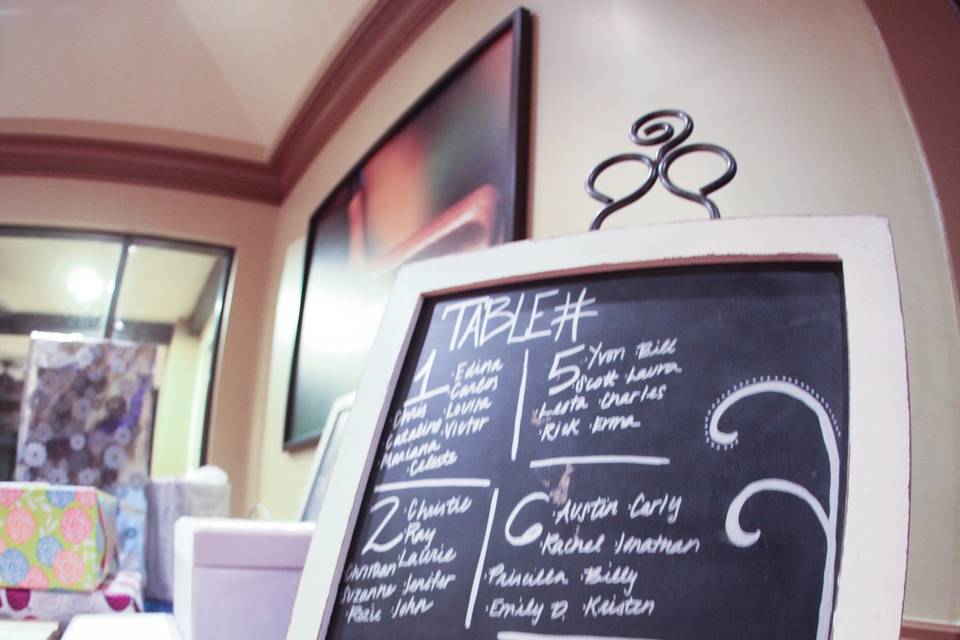 TABLE#
1 · Edina
· Carlos
Chris · Lovira
· Catalino · Victor
· Mariana
· Celeste
5 · Yvon Bill
· Scott · Laura
· Leota · Charles
· Rick · Erma
2 · Christie
· Ray
Christian Laurie
Suzanne Jenifer
· Rozie John
6 · Austin · Carly
· Rachel Jonathan
· Priscilla · Billy
· Emily D. Kristen